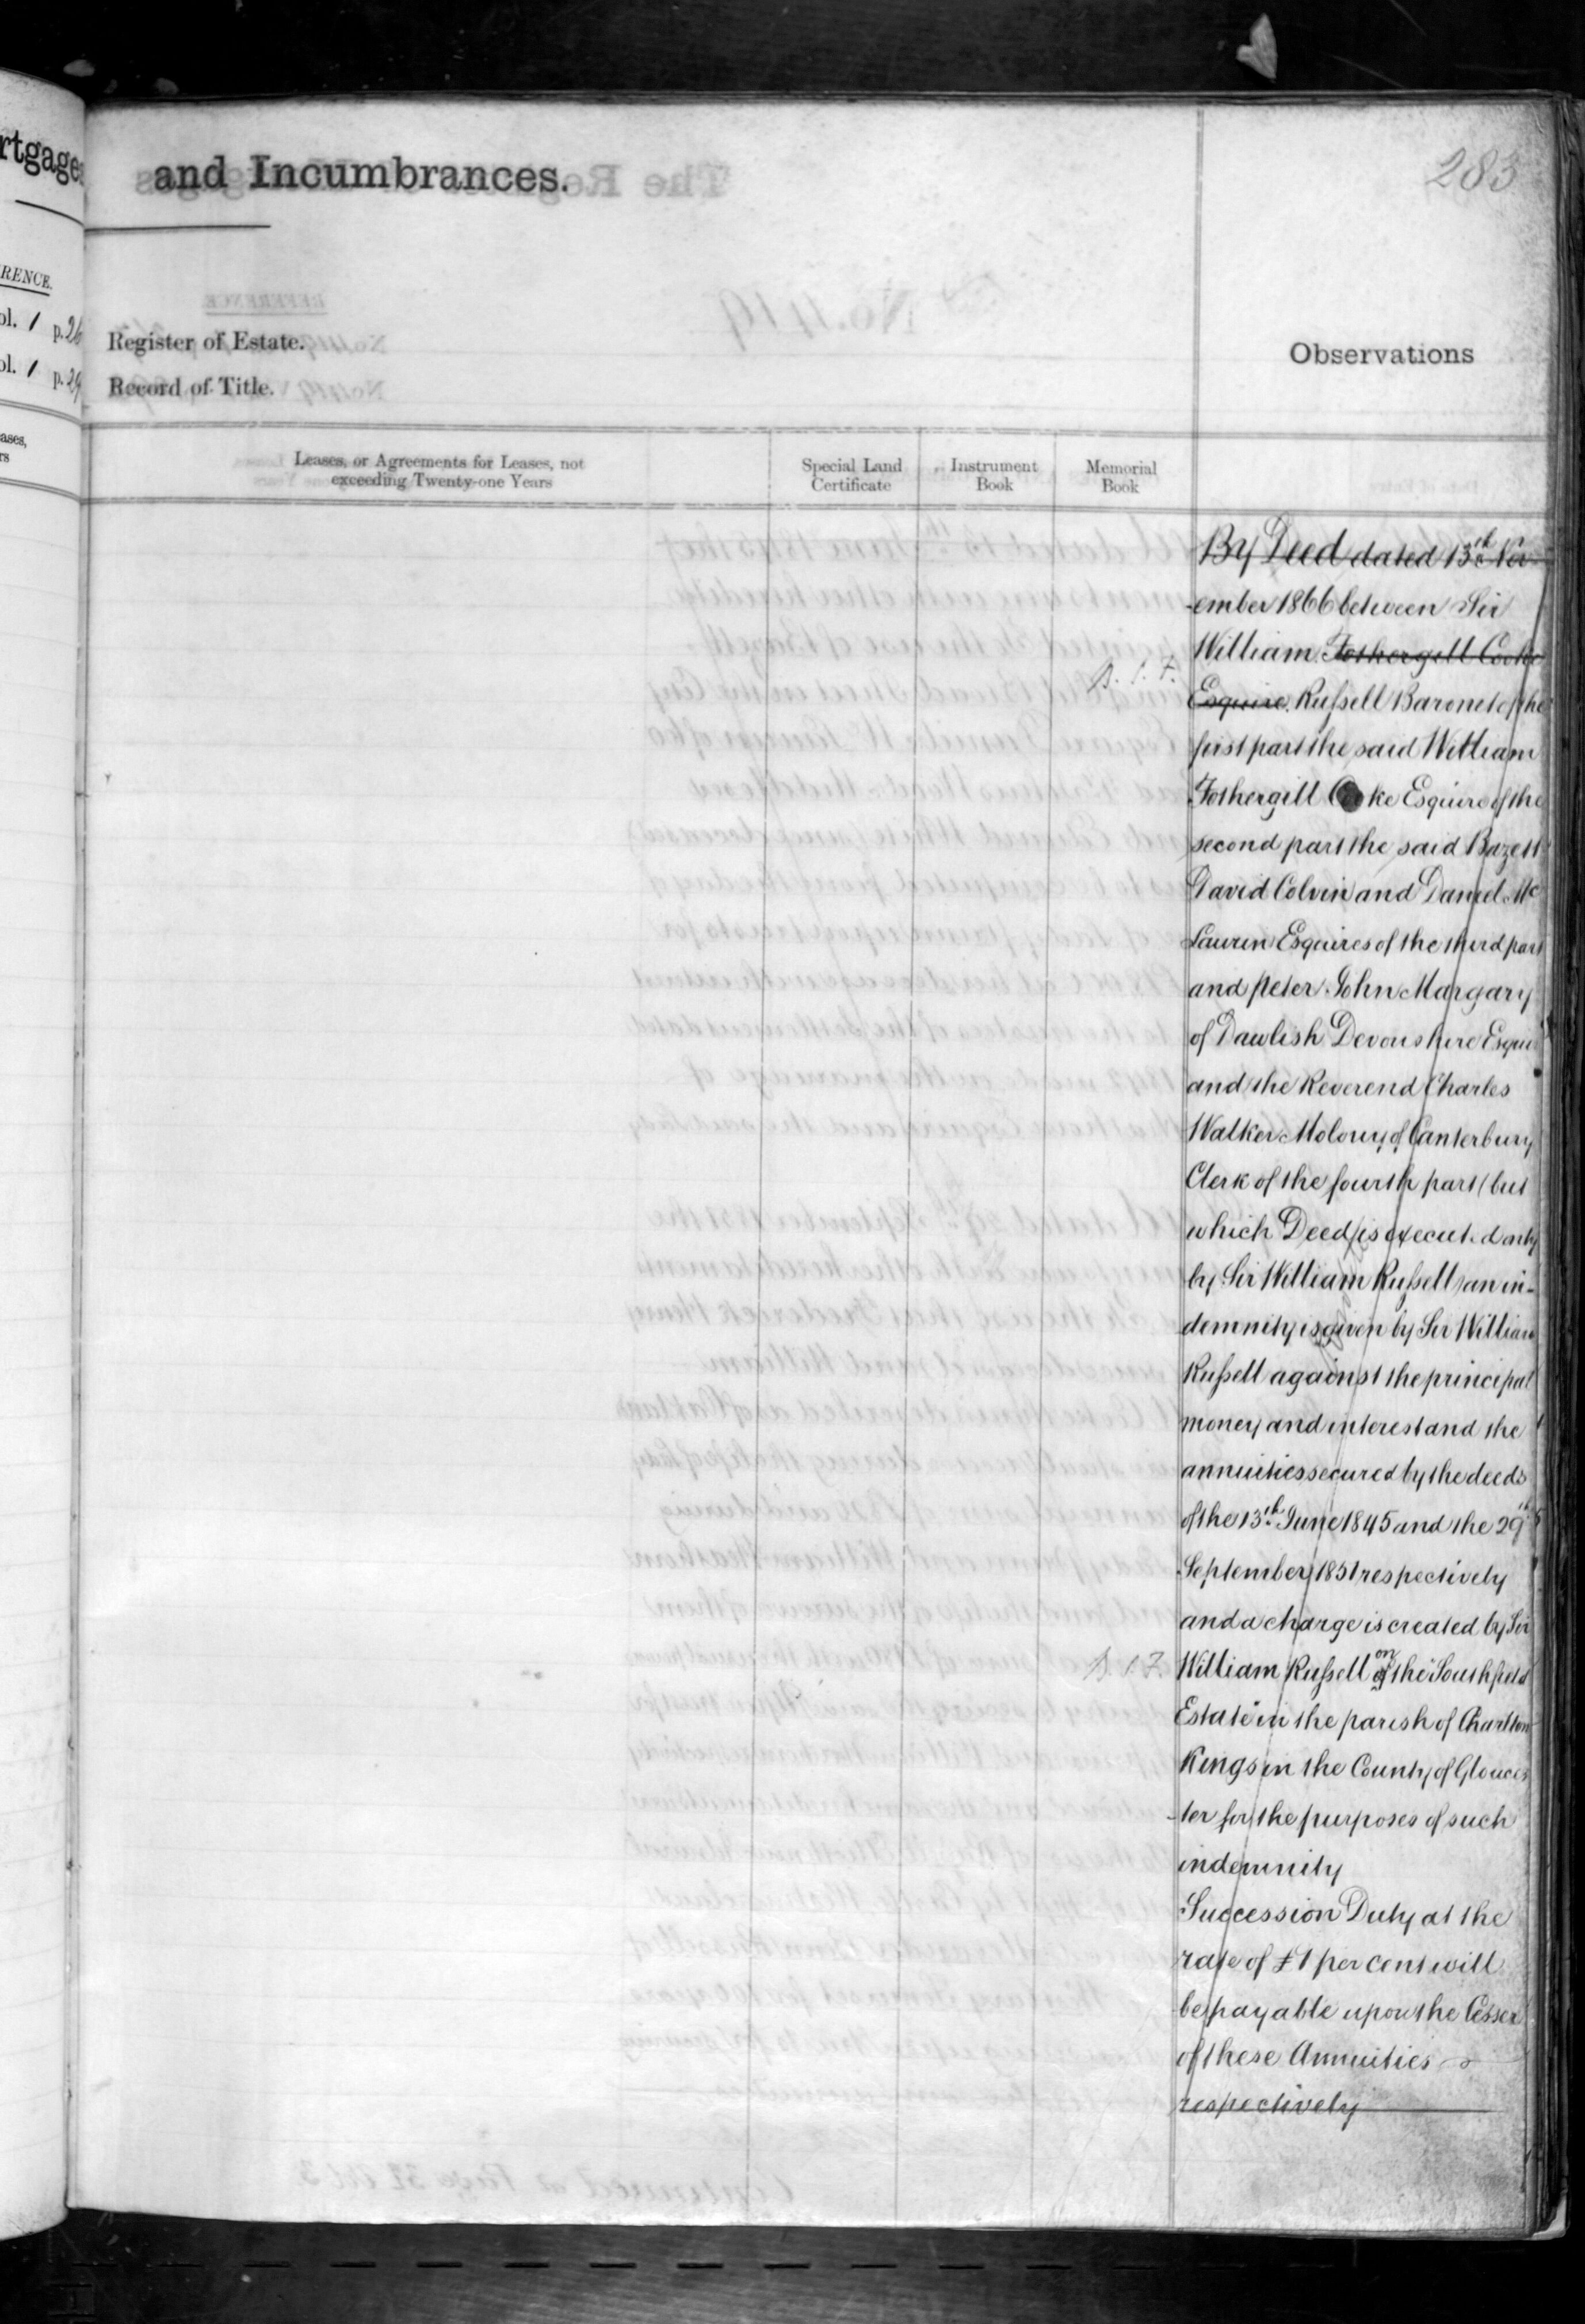 rtgages
and Incumbrances.
283
RENCE.
ol. 1 p. 26
ol. 1 p. 29
Register of Estate.
Record of Title.
Observations
ases,
rs
Leases, or Agreements for Leases, not
exceeding Twenty-one Years
Special Land
Certificate
Instrument
Book
Memorial
Book
By Deed dated 13th Nov
-ember 1866 between Sir
William Fothergill Cooke
Esquire. Russell Baronet of the
first part the said William
Fothergill Cooke Esquire of the
second part the said Bazett
David Colvin and Daniel Mc
Lauren Esquires of the third part
and Peter John Margary
of Dawlish Devonshire Esquire
and the Reverend Charles
Walker Molony of Canterbury
Clerk of the fourth part (but
which Deed is executed only
by Sir William Russell) an in-
demnity is given by Sir William
Russell against the principal
money and interest and the
annuities secured by the deeds
of the 13th June 1845 and the 29th
September 1851 respectively
and a charge is created by Sir
William Russell on of the "Southfield
Estate" in the parish of Charlton
Kings in the County of Glouces
-ter for the purposes of such
indemnity
Succession Duty at the
rate of £1 per cent will
be payable upon the Cesser
of these Annuities
respectively